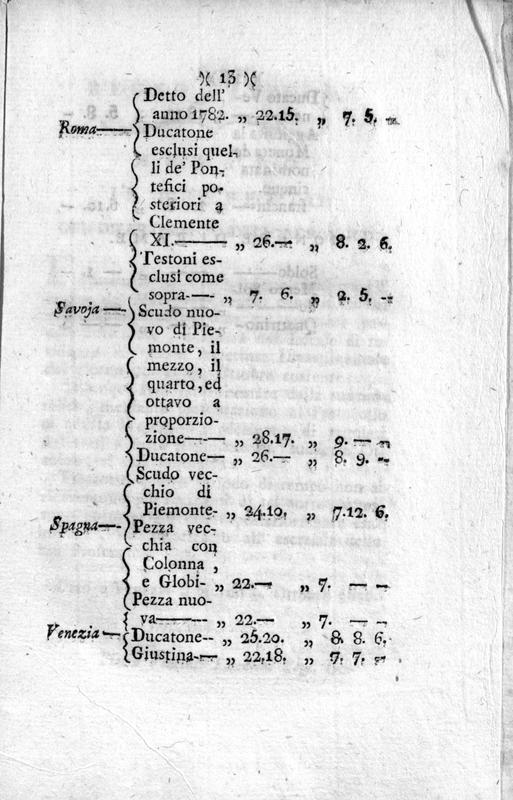 )( 13 )(
Detto dell'
anno 1782. „ 22.15. „ 7. 5. —
Roma— Ducatone
esclusi quel-
li de' Pon-
tefici po-
steriori a
Clemente
XI.—— „ 26.— „ 8. 2. 6.
Testoni es-
clusi come
sopra-— „ 7. 6. „ 2. 5. —
Savoja — Scudo nuo-
vo di Pie-
monte, il
mezzo, il
quarto, ed
ottavo a
proporzio-
zione—— „ 28.17. „ 9. — —
Ducatone— „ 26.— „ 8. 9. —
Scudo vec-
chio di
Piemonte- „ 24.10. „ 7.12. 6.
Spagna— Pezza vec-
chia con
Colonna,
e Globi- „ 22.— „ 7. — —
Pezza nuo-
va—— „ 22.— „ 7. — —
Venezia — Ducatone-- „ 25.20. „ 8. 8. 6.
Giustina-— „ 22.18. „ 7. 7. —